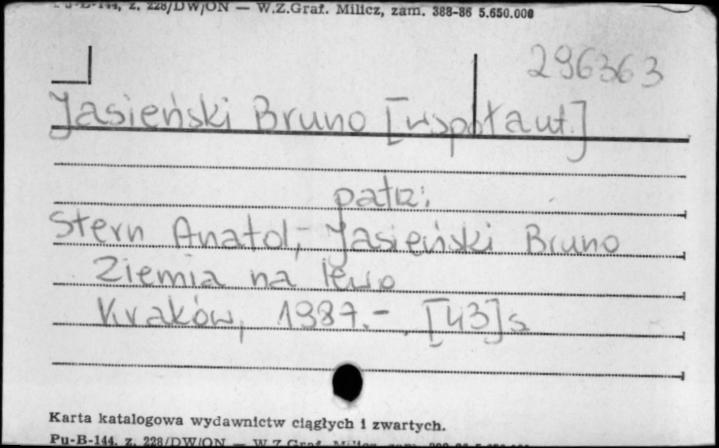 Pu-B-144, z. 228/DW/ON — W.Z.Graf. Milicz, zam. 388-86 5.650.000
296363
Jasieński Bruno [współaut.]
patrz:
Stern Anatol, Jasieński Bruno
Ziemia na lewo
Kraków, 1987.- [43]s
Karta katalogowa wydawnictw ciągłych i zwartych.
Pu-B-144, z. 228/DW/ON — W.Z.Graf. Milicz, zam.